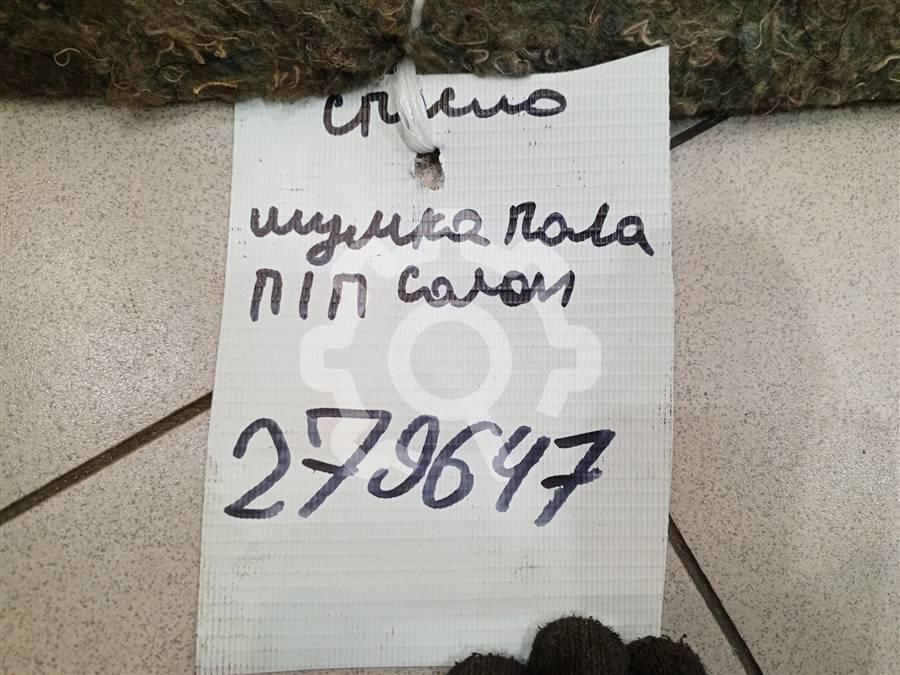 шумка пола
П/П салон
279647